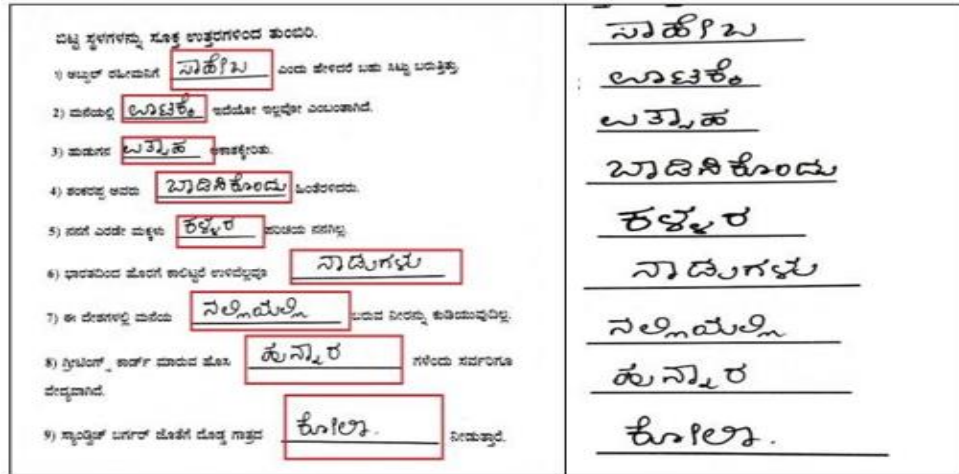 ಬಿಟ್ಟ ಸ್ಥಳಗಳನ್ನು ಸೂಕ್ತ ಉತ್ತರಗಳಿಂದ ತುಂಬಿರಿ.
1) ಅಬ್ದುಲ್ ರಹೀಮನಿಗೆ ಸಾಹೇಬ ಎಂದು ಹೇಳಿದರೆ ಬಹು ಸಿಟ್ಟು ಬರುತ್ತಿತ್ತು.
2) ಮನೆಯಲ್ಲಿ ಊಟಕ್ಕೆ ಇದೆಯೋ ಇಲ್ಲವೋ ಎಂಬಂತಾಗಿದೆ.
3) ಹುಡುಗನ ಉತ್ಸಾಹ ಆಕಾಶಕ್ಕೇರಿತು.
4) ಶಂಕರಪ್ಪ ಅವರು ಬಾಡಿಸಿಕೊಂಡು ಹಿಂತೆರಳಿದರು.
5) ನನಗೆ ಎರಡೇ ಮಕ್ಕಳು ಕಳ್ಳರ ಪರಿಚಯ ನನಗಿಲ್ಲ.
6) ಭಾರತದಿಂದ ಹೊರಗೆ ಕಾಲಿಟ್ಟರೆ ಉಳಿದೆಲ್ಲವೂ ನಾಡುಗಳು
7) ಈ ದೇಶಗಳಲ್ಲಿ ಮನೆಯ ನಲ್ಲಿಯಲ್ಲಿ ಬರುವ ನೀರನ್ನು ಕುಡಿಯುವುದಿಲ್ಲ.
8) ಗ್ರೀಟಿಂಗ್ಸ್ ಕಾರ್ಡ್ ಮಾರುವ ಹೊಸ ಹುನ್ನಾರ ಗಳೆಂದು ಸರ್ವರಿಗೂ
ವೇದ್ಯವಾಗಿದೆ.
9) ಸ್ಯಾಂಡ್ವಿಚ್ ಬರ್ಗರ್ ಜೊತೆಗೆ ದೊಡ್ಡ ಗಾತ್ರದ ಕೋಲಾ. ನೀಡುತ್ತಾರೆ.
ಸಾಹೇಬ
ಊಟಕ್ಕೆ
ಉತ್ಸಾಹ
ಬಾಡಿಸಿಕೊಂಡು
ಕಳ್ಳರ
ನಾಡುಗಳು
ನಲ್ಲಿಯಲ್ಲಿ
ಹುನ್ನಾರ
ಕೋಲಾ.